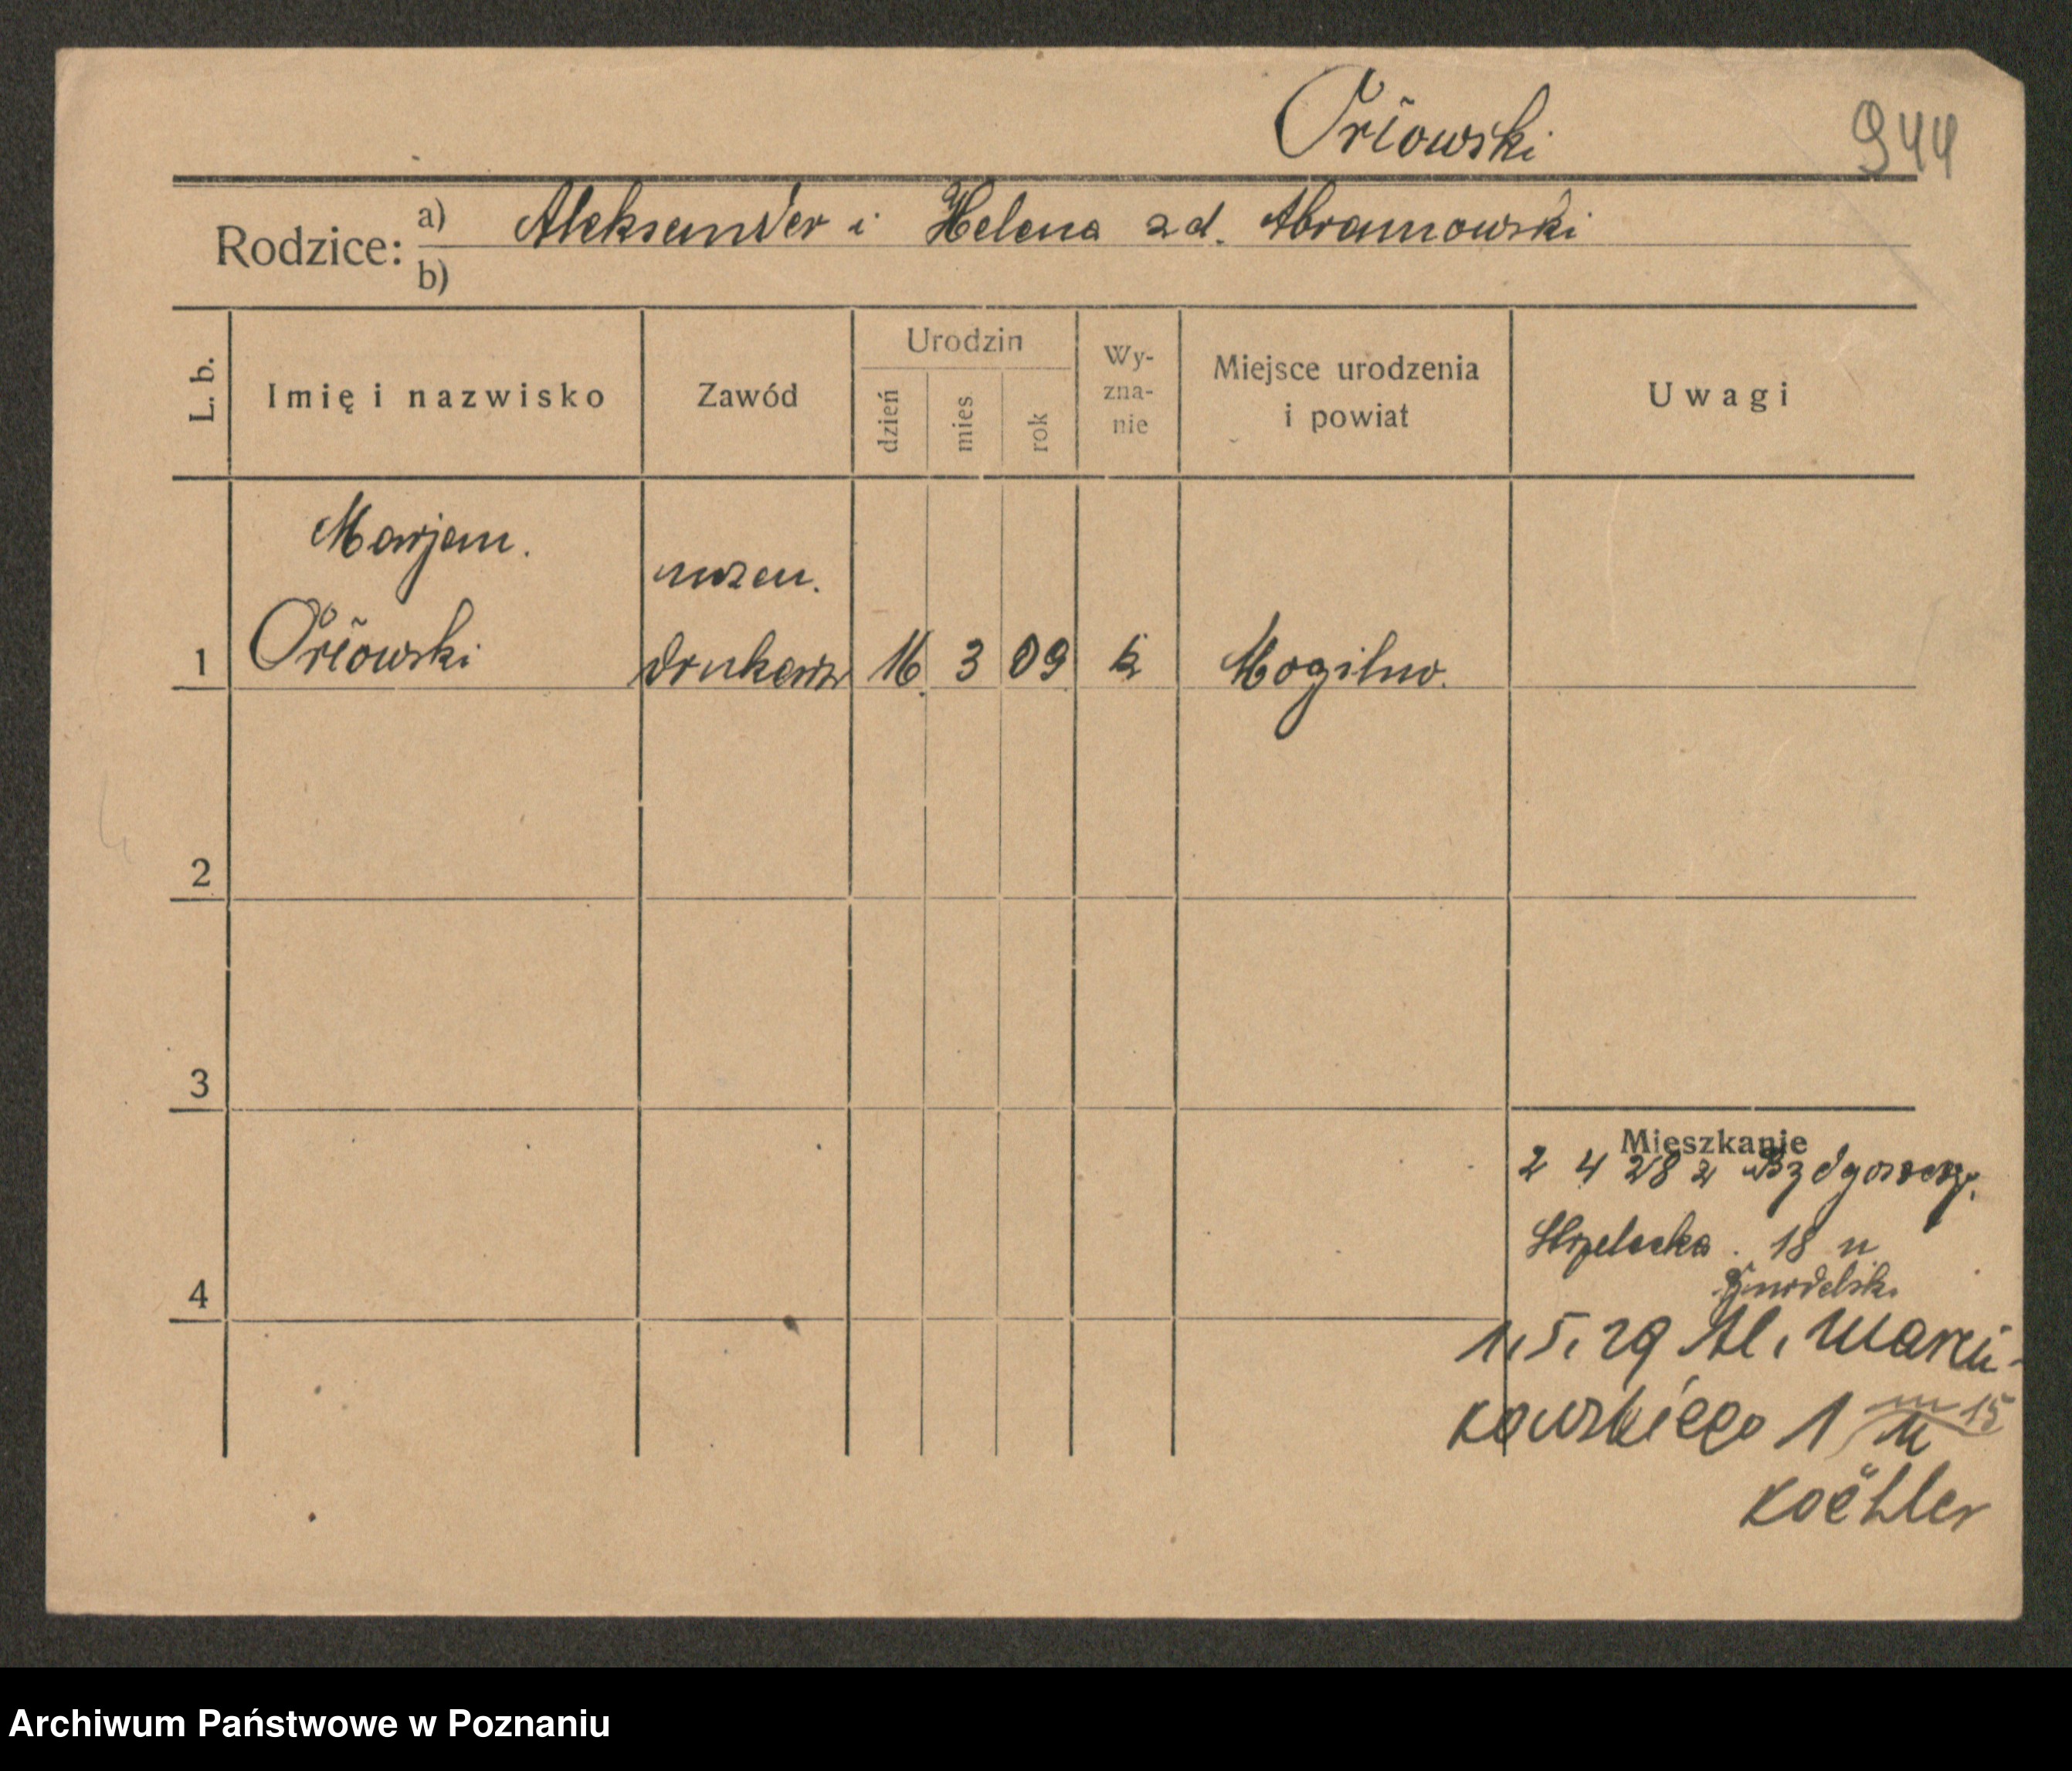 Orłowski
944
Rodzice: a) Aleksander i Helena zd. Abramowski
b)
L. b.
Imię i nazwisko
Zawód
Urodzin
dzień
mies
rok
Wy-
zna-
nie
Miejsce urodzenia
i powiat
Uwagi
Marjan.
uczeń.
1 Orłowski drukarz 16 3 09 k Mogilno.
2
3
Mieszkanie
2 4 28 z Bydgoszczy.
Strzelecka 18 u
4
1.5.29 Al. Marcin-
kowskiego 1 u
m 15
Koehler
Archiwum Państwowe w Poznaniu